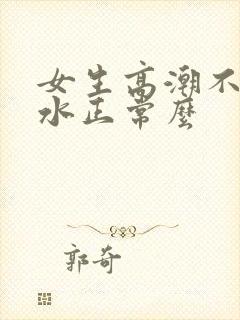 女生高潮不
水正常麼
郭奇